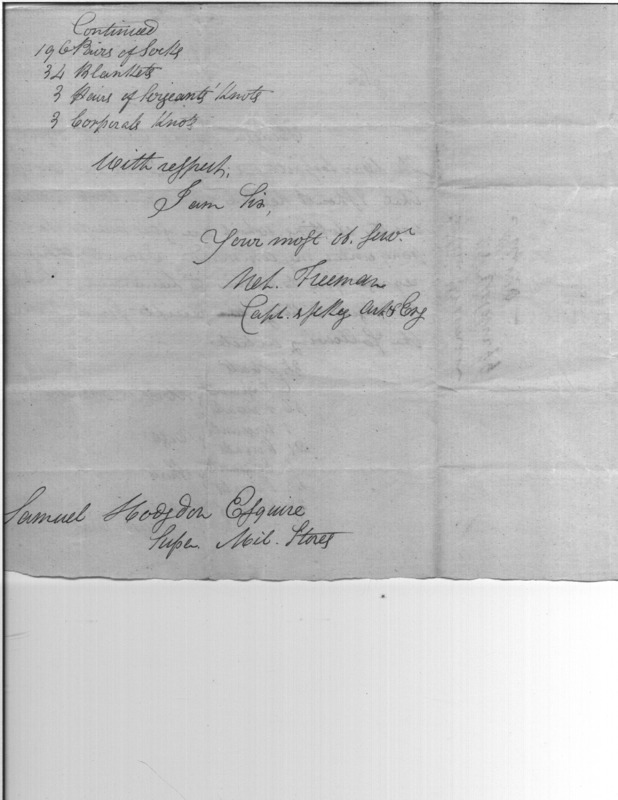 Continued
196 Pairs of Socks
34 Blankets
3 Pairs of Sergeants' Knots
3 Corporals Knots
With respect,
I am Sir,
Your most ob. serv.
Net. Freeman
Capt. Art & Eng
Samuel Hodgdon Esquire
Super. Mil. Stores